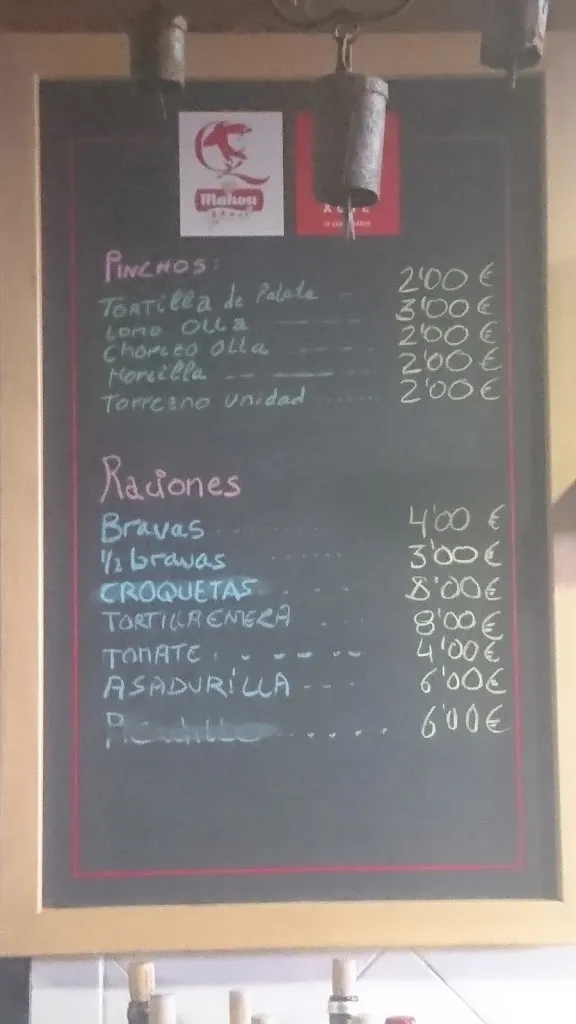 Mahou
PINCHOS:
TORTILLA de Patata 2'00 €
LOMO OLLA 3'00 €
CHORIZO OLLA 2'00 €
MORCILLA 2'00 €
TORREZNO unidad 2'00 €
Raciones
Bravas 4'00 €
1/2 bravas 3'00 €
CROQUETAS 8'00 €
TORTILLA ENTERA 8'00 €
TOMATE 4'00 €
ASADURILLA 6'00 €
6'00 €